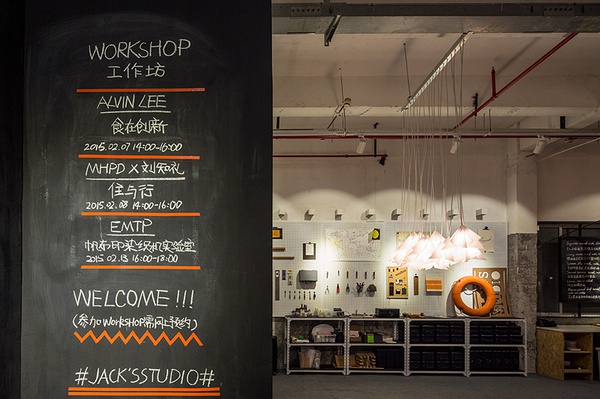 WORKSHOP
工作坊
ALVIN LEE
食在创新
2015.02.07 14:00-16:00
MHPD X 刘知礼
住与行
2015.02.08 14:00-16:00
EMTP
帆布印染织机实验室
2015.02.13 16:00-18:00
WELCOME!!!
(参加WORKSHOP需网上预约)
#JACK'SSTUDIO#